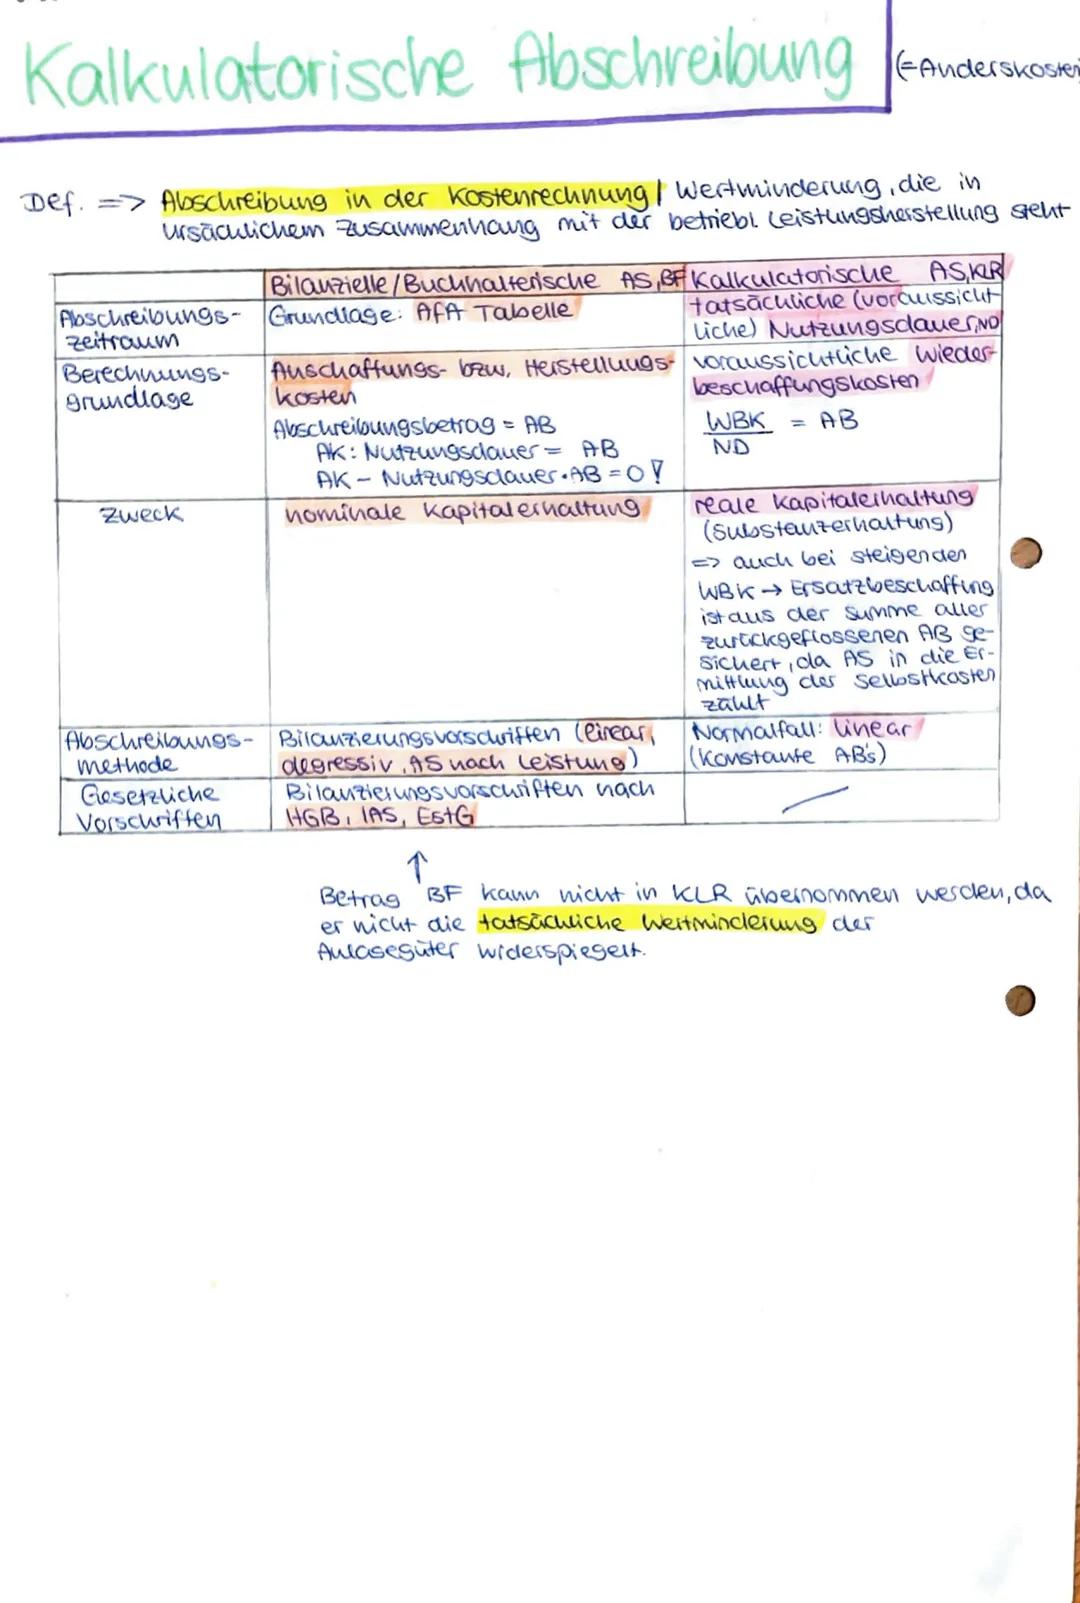 Kalkulatorische Abschreibung (=Anderskosten
Def. => Abschreibung in der Kostenrechnung | Wertminderung, die in
ursächlichem Zusammenhang mit der betriebl. Leistungsherstellung steht
Bilanzielle/Buchhalterische AS, BF
Kalkulatorische AS, KLR
Abschreibungs-
zeitraum
Grundlage: AfA Tabelle
tatsächliche (voraussicht-
liche) Nutzungsdauer, ND
Berechnungs-
grundlage
Anschaffungs- bzw. Herstellungs-
kosten
Abschreibungsbetrag = AB
AK : Nutzungsdauer = AB
AK - Nutzungsdauer • AB = 0 !
voraussichtliche Wieder-
beschaffungskosten
WBK = AB
ND
Zweck
nominale Kapitalerhaltung
reale Kapitalerhaltung
(Substanzerhaltung)
=> auch bei steigenden
WBK → Ersatzbeschaffung
ist aus der Summe aller
zurückgeflossenen AB ge-
sichert, da AS in die Er-
mittlung der Selbstkosten
zählt
Abschreibungs-
methode
Bilanzierungsvorschriften (linear,
degressiv, AS nach Leistung)
Normalfall: linear
(Konstante AB's)
Gesetzliche
Vorschriften
Bilanzierungsvorschriften nach
HGB, IAS, EstG
↑
Betrag BF kann nicht in KLR übernommen werden, da
er nicht die tatsächliche Wertminderung der
Anlagegüter widerspiegelt.